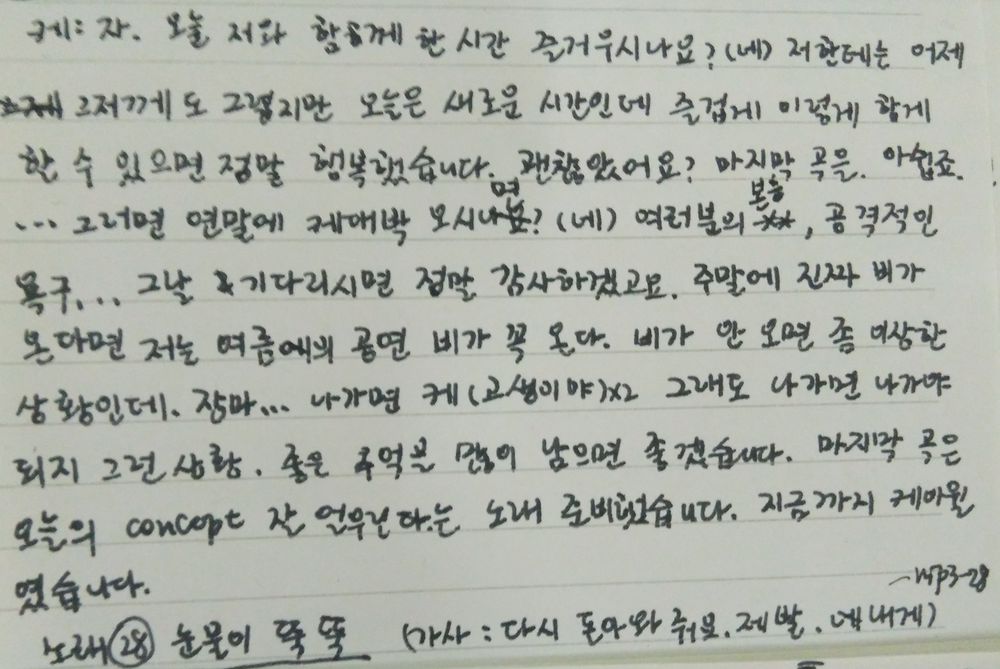 케: 자. 오늘 저와 함께 한 시간 즐거우시나요? (네) 저한테는 어제
그저께도 그렇지만 오늘은 새로운 시간인데 즐겁게 이렇게 함게
한 수 있으면 정말 행복했습니다. 괜찮았어요? 마지막 곡은. 아쉽죠.
... 그러면 연말에 케대박 오시나면? (네) 여러분의 본능, 공격적인
욕구... 그날 기다리시면 정말 감사하겠고요. 주말에 진짜 비가
온다면 저는 여름에의 공연 비가 꼭 온다. 비가 안 오면 좀 이상한
상황인데. 장마... 나가면 케 (고생이야)x2 그래도 나가면 나가야
되지 그런 상황. 좋은 추억분 많이 남으면 좋겠습니다. 마지막 곡은
오늘의 concept 잘 어우린다.는 노래 준비했습니다. 지금까지 케이윌
였습니다.
노래 28 눈물이 뚝뚝 (가사 : 다시 돌아와 줘요. 제발. 내게)